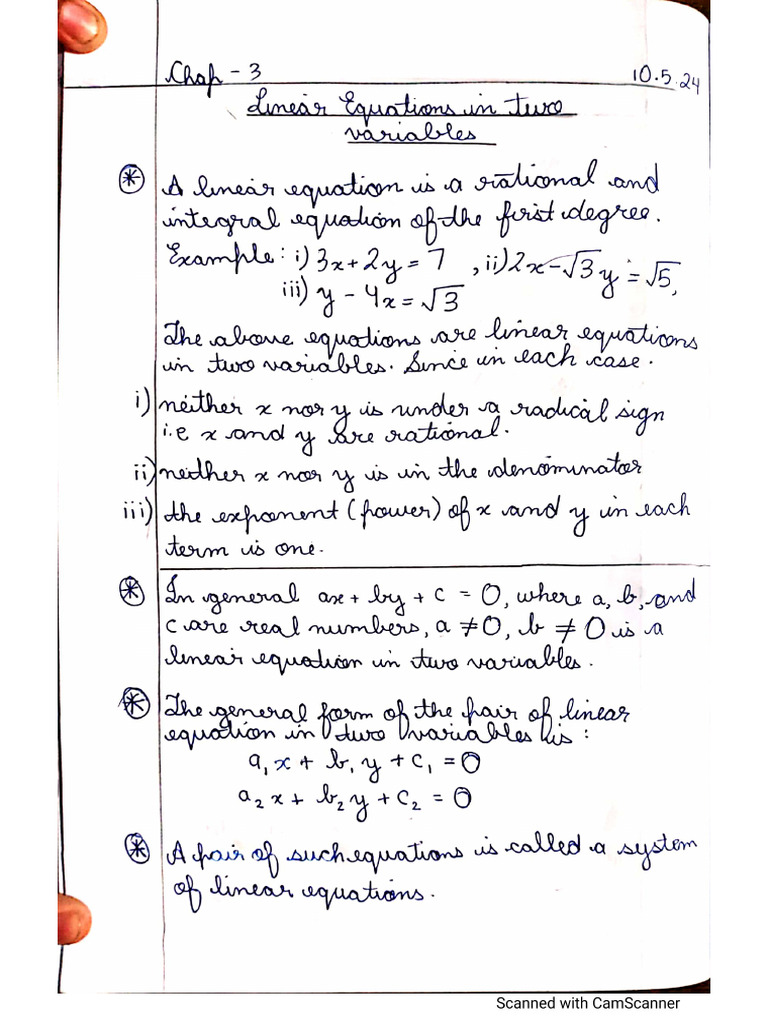 Chap - 3
10.5.24
Linear Equations in two
variables
* A linear equation is a rational and
integral equation of the first degree.
Example: i) 3x + 2y = 7 , ii) 2x - √3 y = √5,
iii) y - 4x = √3
The above equations are linear equations
in two variables. Since in each case.
i) neither x nor y is under a radical sign
i.e x and y are rational.
ii) neither x nor y is in the denominator
iii) the exponent (power) of x and y in each
term is one.
* In general ax + by + c = 0, where a, b, and
c are real numbers, a ≠ 0, b ≠ 0 is a
linear equation in two variables.
* The general form of the pair of linear
equation in two variables is :
a₁x + b₁y + c₁ = 0
a₂x + b₂y + c₂ = 0
* A pair of such equations is called a system
of linear equations.
Scanned with CamScanner